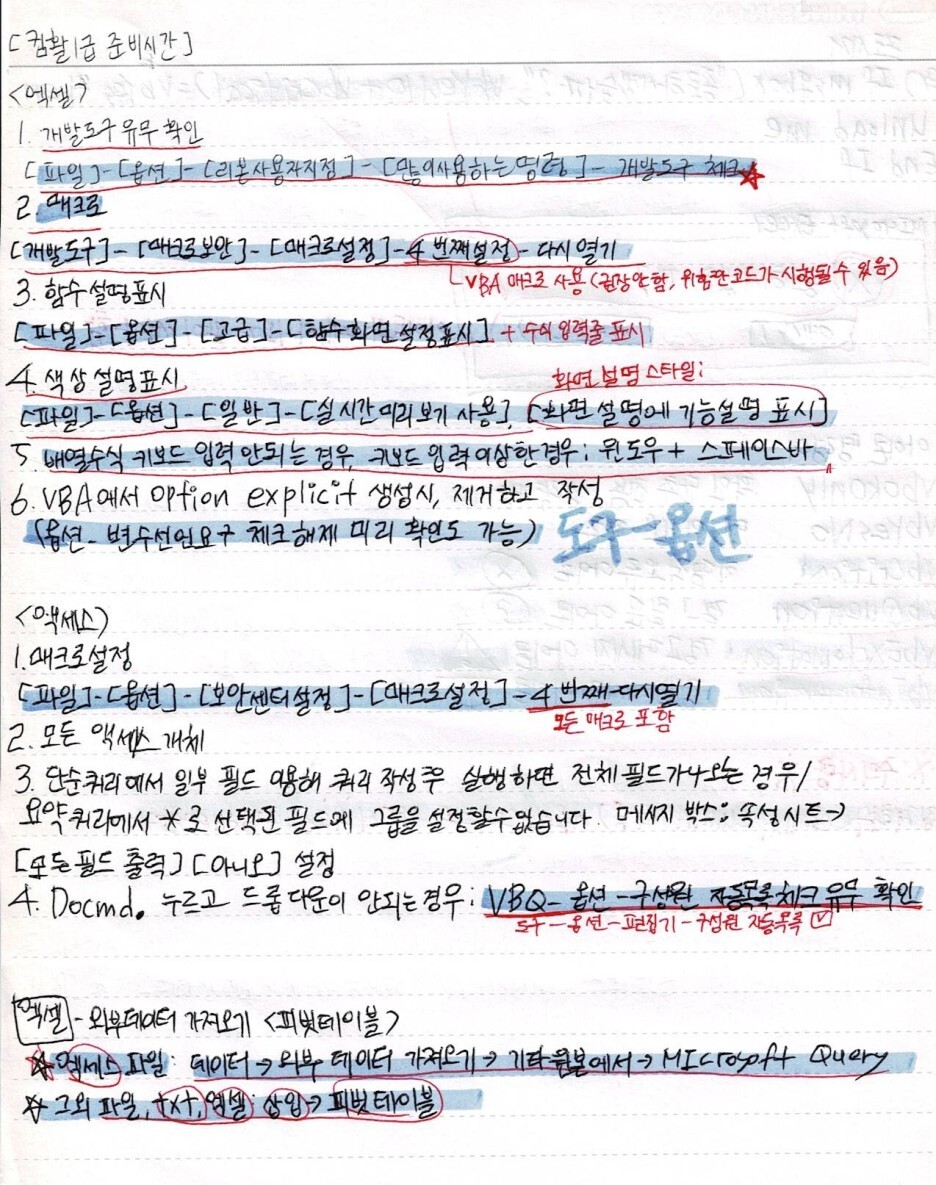 [컴활1급 준비시간]
<엑셀>
1. 개발도구 유무 확인
[파일]-[옵션]-[리본사용자지정]-[많이사용하는 명령]- 개발도구 체크★
2. 매크로
[개발도구]-[매크로보안]-[매크로설정]-4번째설정 - 다시 열기
VBA 매크로 사용(권장안함, 위험한 코드가 시행될 수 있음)
3. 함수 설명표시
[파일]-[옵션]-[고급]-[함수 화면 설정표시] + 수식 입력줄 표시
4. 색상 설명표시
화면 설명 스타일;
[파일]-[옵션]-[일반]-[실시간 미리보기 사용], [화면 설명에 기능설명 표시]
5 배열수식 키보드 입력 안되는 경우, 키보드 입력 이상한 경우; 윈도우 + 스페이스바
6. VBA에서 option explicit 생성시, 제거하고 작성
(옵션- 변수선언요구 체크해제 미리 확인도 가능) 도구-옵션
<액세스>
1. 매크로설정
[파일]-[옵션]-[보안센터설정]-[매크로설정]-4번째-다시열기
모든 매크로 포함
2. 모든 액세스 개체
3. 단순쿼리에서 일부 필드 이용해 쿼리 작성 후 실행하면 전체 필드가 나오는 경우/
요약쿼리에서 *로 선택된 필드에 그룹을 설정할 수 없습니다. 메세지 박스; 속성시트→
[모든 필드 출력] [아니오] 설정
4. Docmd. 누르고 드롭다운이 안되는 경우; VBQ- 옵션 -구성원 자동목록 체크 유무 확인
도구 - 옵션 - 편집기 - 구성원 자동목록 ☑
엑셀 - 외부데이터 가져오기 <피벗테이블>
☆ 엑세스 파일: 데이터→외부 데이터 가져오기→기타원본에서→MIcrosoft Query
☆ 그외 파일, txt, 엑셀; 삽입→피벗테이블